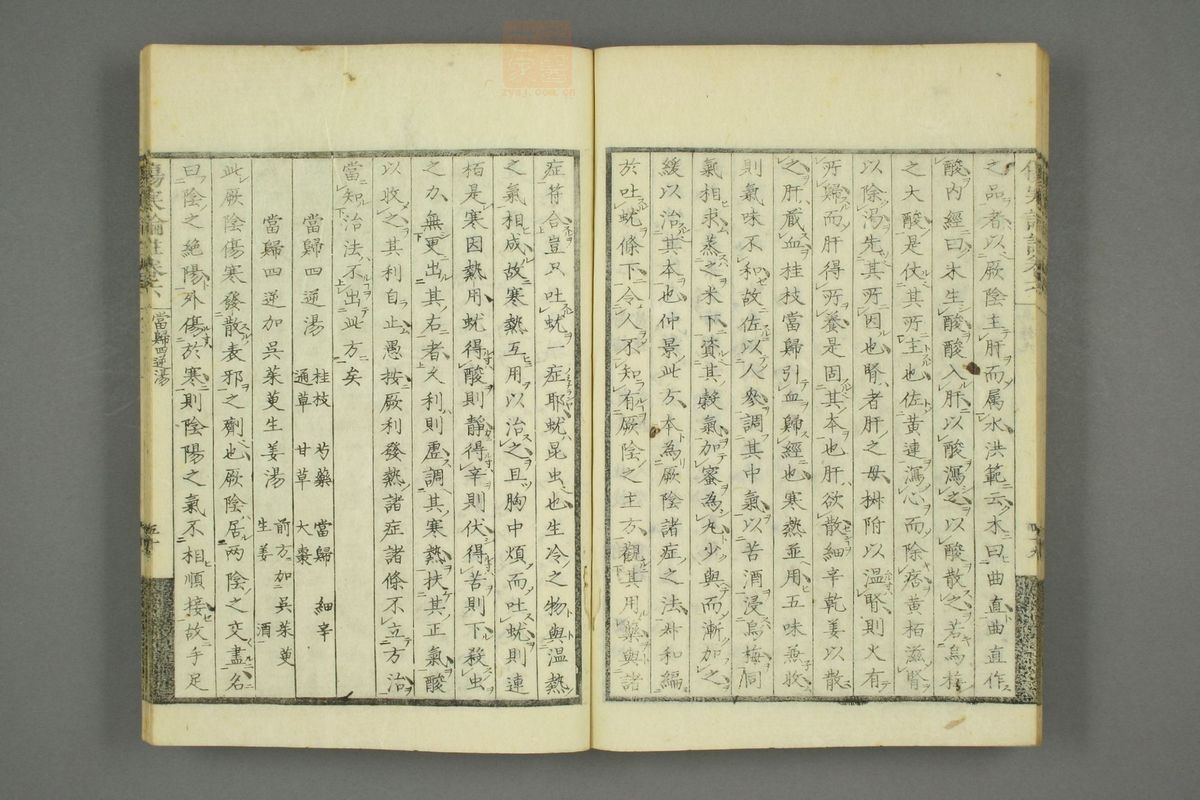 之品者以厥陰主肝而属水洪範云木曰曲直曲直作
酸內經曰木生酸酸入肝以酸瀉之以酸散之若烏梅
之大酸是伏其所主也佐黃連瀉心而除痞黃栢滋腎
以除渴先其所因也腎者肝之母椒附以温腎則火有
所歸而肝得所養是固其本也肝欲散細辛乾姜以散
之肝藏血桂枝當歸引血歸經也寒熱並用五味兼收
則氣味不和故佐以人參調其中氣以苦酒浸烏梅同
氣相求蒸之米下資其穀氣加蜜為丸少與而漸加之
緩以治其本也仲景此方本為厥陰諸症之法叔和編
於吐蚘條下令人不知有厥陰之主方觀其用藥與諸
症符合豈只吐蚘一症耶蚘昆虫也生冷之物與温熱
之氣相成故寒熱互用以治之且胸中煩而吐蚘則連
栢是寒因熱用蚘得酸則靜得辛則伏得苦則下殺虫
之力無更出其右者久利則虛調其寒熱扶其正氣酸
以收之其利自止愚按厥利發熱諸症諸條不立方治
當知治法不出此方矣
當歸四逆湯
桂枝 芍藥 當歸 細辛
通草 甘草 大棗
當歸四逆加吳茱萸生姜湯
前方加吳茱萸
生姜 酒
此厥陰傷寒發散表邪之劑也厥陰居兩陰之交盡名
曰陰之絕陽外傷於寒則陰陽之氣不相順接故手足
當歸四逆湯
五十